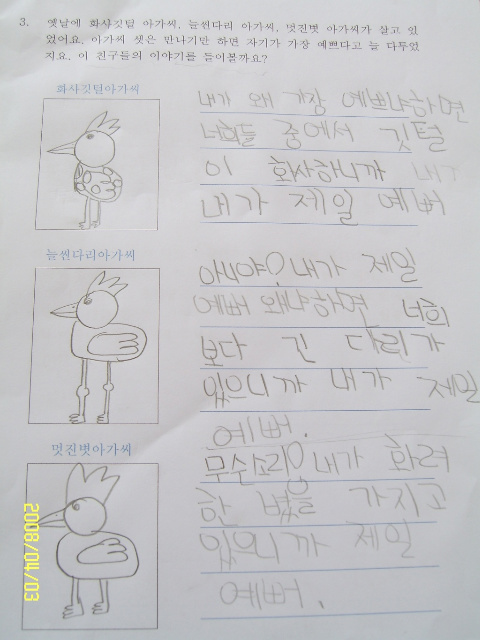 3. 옛날에 화사깃털 아가씨, 늘씬다리 아가씨, 멋진볏 아가씨가 살고 있
었어요. 아가씨 셋은 만나기만 하면 자기가 가장 예쁘다고 늘 다투었
지요. 이 친구들의 이야기를 들어볼까요?
화사깃털아가씨
내가 왜 가장 예쁘냐하면
너희들 중에서 깃털
이 화사하니까 내가
내가 제일 예뻐
늘씬다리아가씨
아니야! 내가 제일
예뻐 왜냐하면 너희
보다 긴 다리가
있으니까 내가 제일
예뻐.
멋진볏아가씨
무슨소리! 내가 화려
한 볏을 가지고
있으니까 제일
예뻐.
2008/04/03